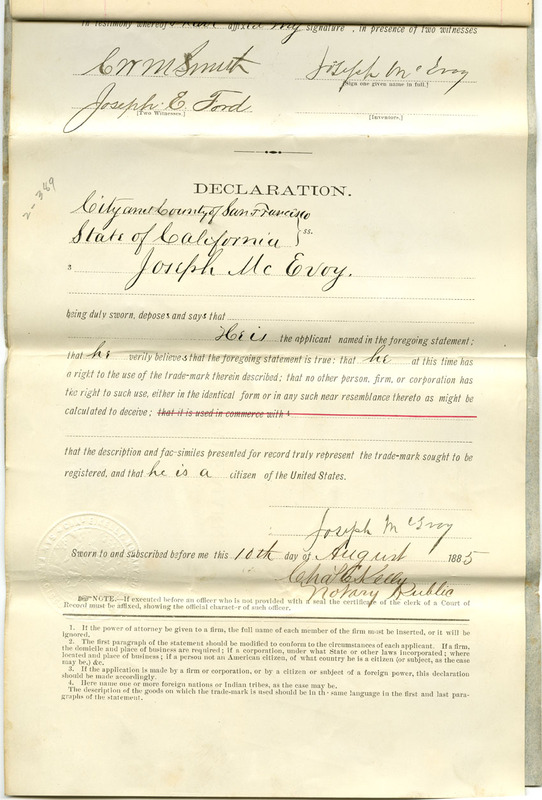 In testimony whereof I have affixed my signature, in presence of two witnesses
C W M Smith Joseph Mc Evoy
[Sign one given name in full.]
Joseph. E. Ford.
[Two Witnesses.] [Inventors.]
2-369
DECLARATION.
City and County of San Francisco
State of California } ss.
3 Joseph Mc Evoy.
being duly sworn, deposes and says that
He is the applicant named in the foregoing statement;
that he verily believes that the foregoing statement is true: that he at this time has
a right to the use of the trade-mark therein described; that no other person, firm, or corporation has
the right to such use, either in the identical form or in any such near resemblance thereto as might be
calculated to deceive; that it is used in commerce with 4
that the description and fac-similes presented for record truly represent the trade-mark sought to be
registered, and that he is a citizen of the United States.
Joseph Mc Evoy
Sworn to and subscribed before me this 10th day of August 1885
Chas. E. Kelly
Notary Public
NOTE.—If executed before an officer who is not provided with a seal the certificate of the clerk of a Court of
Record must be affixed, showing the official character of such officer.
1. If the power of attorney be given to a firm, the full name of each member of the firm must be inserted, or it will be
ignored.
2. The first paragraph of the statement should be modified to conform to the circumstances of each applicant. If a firm,
the domicile and place of business are required; if a corporation, under what State or other laws incorporated; where
located and place of business; if a person not an American citizen, of what country he is a citizen (or subject, as the case
may be,) &c.
3. If the application is made by a firm or corporation, or by a citizen or subject of a foreign power, this declaration
should be made accordingly.
4. Here name one or more foreign nations or Indian tribes, as the case may be.
The description of the goods on which the trade-mark is used should be in the same language in the first and last para-
graphs of the statement.